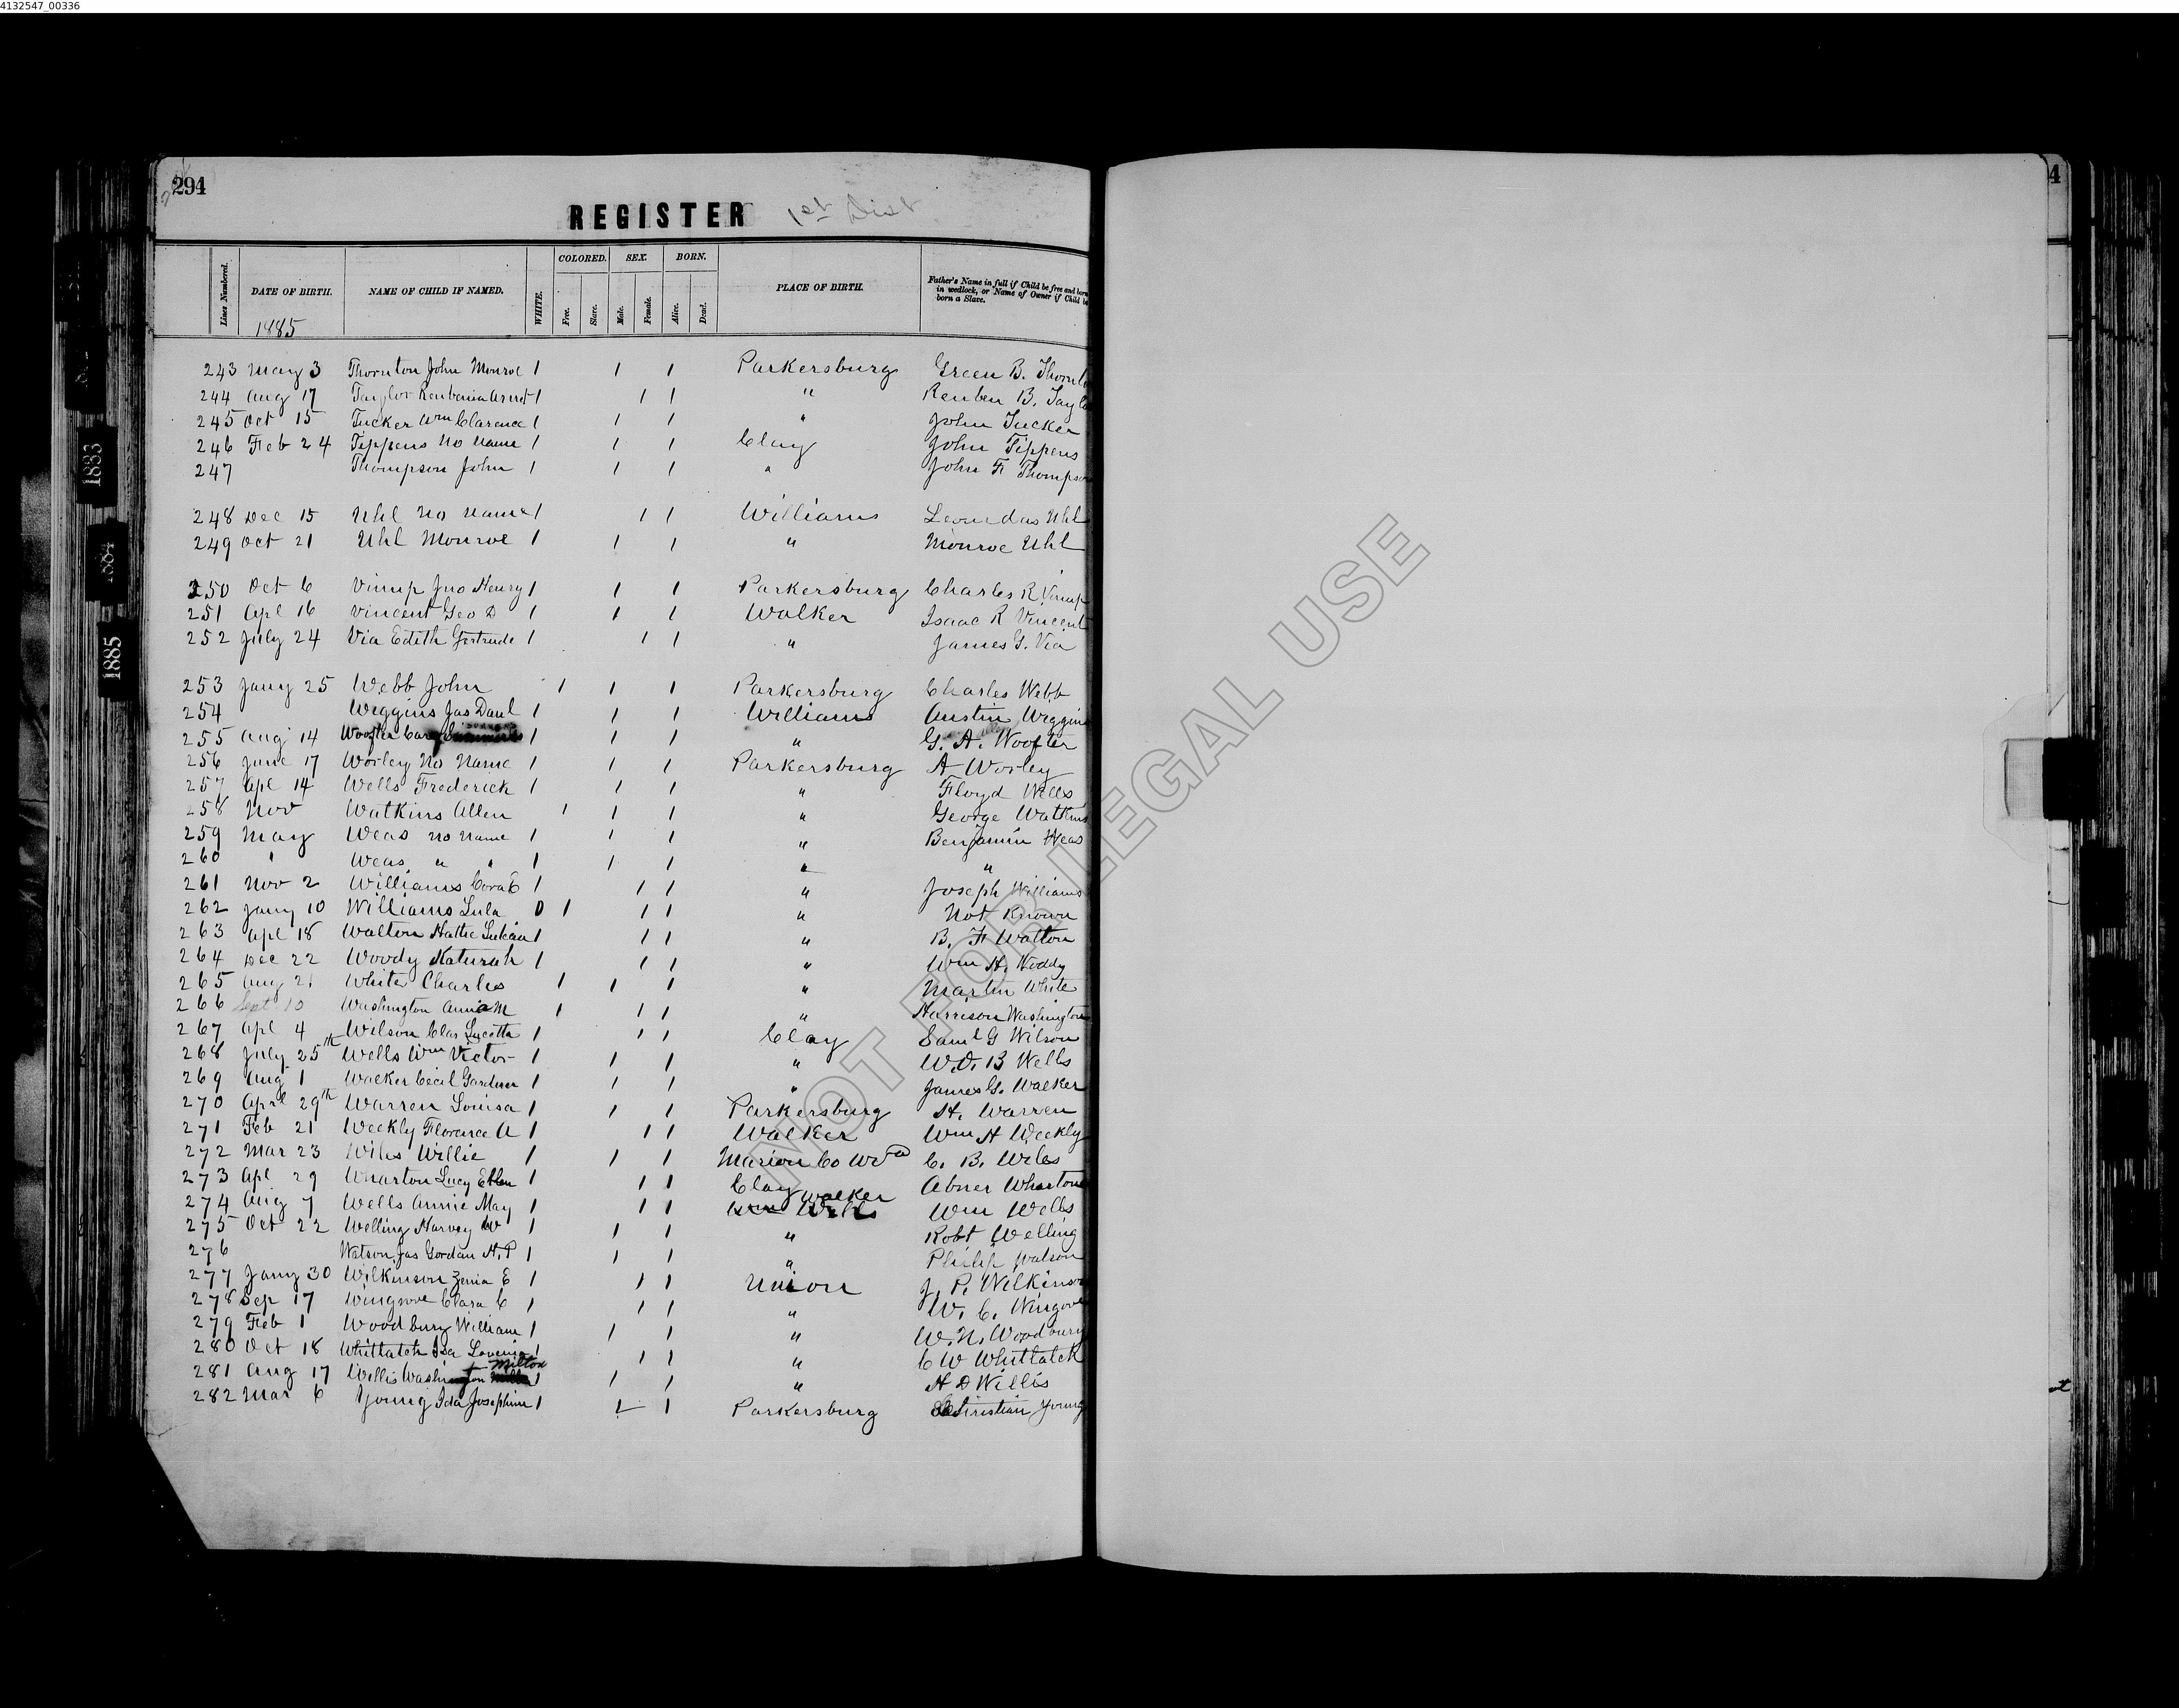 4132547_00336
294
REGISTER 1st Dist
Lines Numbered. DATE OF BIRTH. NAME OF CHILD IF NAMED. WHITE. COLORED. Free. Slave. SEX. Male. Female. BORN. Alive. Dead. PLACE OF BIRTH. Father's Name in full if Child be free and born in wedlock, or Name of Owner if Child be born a Slave.
1885
243 May 3 Thornton John Monroe 1 1 1 Parkersburg Green B. Thornto
244 Aug 17 Taylor 1 1 1 " Reuben B. Taylo
245 Oct 15 Tucker Wm Clarence 1 1 1 " John Tucker
246 Feb 24 Tippens No Name 1 1 1 Clay John Tippens
247 Thompson John 1 1 1 " John F Thompson
248 Dec 15 Uhl No Name 1 1 1 Williams Leonidas Uhl
249 Oct 21 Uhl Monroe 1 1 1 " Monroe Uhl
250 Oct 6 Vimp Jno Henry 1 1 1 Parkersburg Charles R Vimp
251 Apl 16 Vincent Geo D 1 1 1 Walker Isaac R Vincent
252 July 24 Via Edith Gertrude 1 1 1 " James G. Via
253 Jany 25 Webb John 1 1 1 Parkersburg Charles Webb
254 Wiggins Jas Danl 1 1 1 Williams Austin Wiggins
255 Aug 14 Woofter 1 1 1 " G. A. Woofter
256 June 17 Worley No Name 1 1 1 Parkersburg A Worley
257 Apl 14 Wells Frederick 1 1 1 " Floyd Wells
258 Nov Watkins Allen 1 1 1 " George Watkins
259 May Weas no name 1 1 1 " Benjamin Weas
260 " Weas " " 1 1 1 " "
261 Nov 2 Williams Cora E 1 1 1 " Joseph Williams
262 Jany 10 Williams Lula 0 1 1 1 " Not Known
263 Apl 18 Walton Hattie 1 1 1 " B. F Walton
264 Dec 22 Woody Katurah 1 1 1 " Wm H. Woddy
265 Aug 21 White Charles 1 1 1 " Martin White
266 Sept 10 Washington Annie M 1 1 1 " Harrison Washington
267 Apl 4 Wilson Clas Lucetta 1 1 1 Clay Saml G Wilson
268 July 25th Wells Wm Victor 1 1 1 " W. D. B Wells
269 Aug 1 Walker Cecil Gardner 1 1 1 " James G. Walker
270 Aprl 29th Warren Louisa 1 1 1 Parkersburg H. Warren
271 Feb 21 Weekly Florence A 1 1 1 Walker Wm H Weekly
272 Mar 23 Wiles Willie 1 1 1 Marion Co WVa C. B. Wiles
273 Apl 29 Wharton Lucy Ellen 1 1 1 Clay Abner Wharton
274 Aug 7 Wells Annie May 1 1 1 Wm Wells Walker Wm Wells
275 Oct 22 Welling Harvey W 1 1 1 " Robt Welling
276 Watson Jas Gordan H. P 1 1 1 " Philip Watson
277 Jany 30 Wilkinson Zenia E 1 1 1 Union J. P. Wilkinson
278 Sep 17 Wingrove Clara C 1 1 1 " W. C. Wingove
279 Feb 1 Woodbury William 1 1 1 " W. N. Woodbury
280 Oct 18 Whittatch Ida Lovenia 1 1 1 " C W Whittatch
281 Aug 17 Willis Washington Milton 1 1 1 " H D Willis
282 Mar 6 Young Ida Josephine 1 1 1 Parkersburg Christian Young
1883
1884
1885
4
NOT FOR LEGAL USE